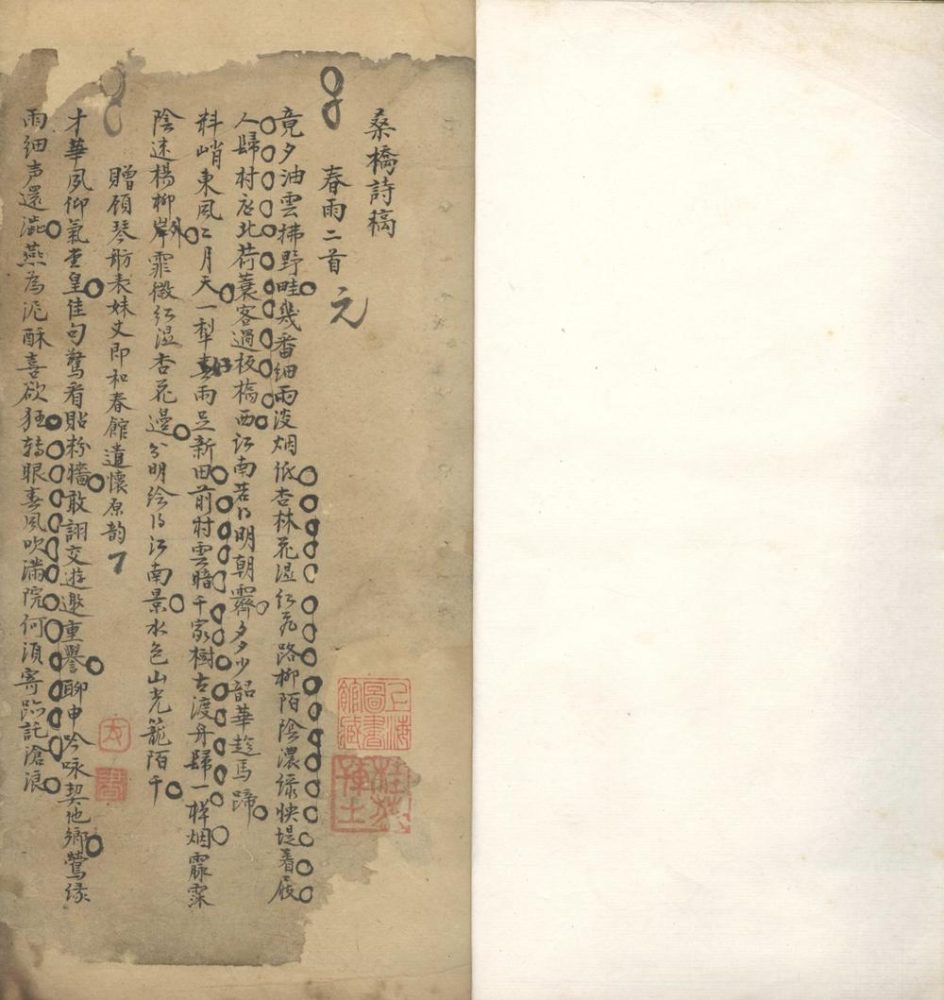 桑橋詩稿
春雨二首 元
竟夕油雲拂野畦幾番細雨淡烟低杏林花湿紅飛路柳陌陰濃緑快堤着屐
人歸村店北荷蓑客過板橋西江南若明朝霽多少韶華趁馬蹄
料峭東風二月天一犁春雨足新田前村雲暗千家樹古渡舟歸一樣烟霏霂
陰迷楊柳岸霏微紅湿杏花邊分明绘江南景水色山光籠陌千
贈顧琴舫表妹丈即和春館遣懷原韵
才華夙仰氣堂皇佳句驚看貼粉牆敢詡交遊邀重譽聊申吟咏契他鄉鶯緣
雨細声還澁燕為泥酥喜欲狂轉眼春風吹滿院何須寄託滄浪
上海圖書館藏